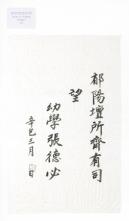 陽壇所齋有司
望
幼學張德必
辛巳三月 日